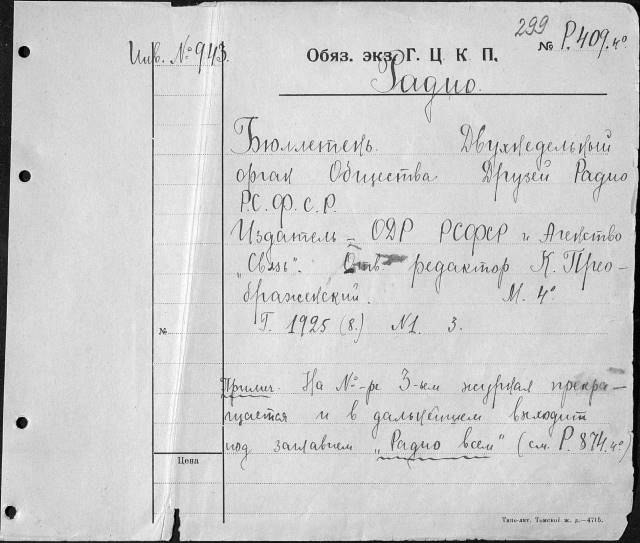 299
Инв. № 943.
Обяз. экз. Г. Ц. К. П. № Р. 409. 4°
Радио.
Бюллетень. Двухнедельный
орган Общества Друзей Радио
Р.С.Ф.С.Р.
Издатель – ОДР РСФСР и Агенство
„Связь“. Отв. редактор К. Прео-
браженский. М. 4°
№ Г. 1925 (8.) N 1. 3.
Примеч. На №-ре 3-ем журнал прекра-
щается и в дальнейшем выходит
под заглавием „Радио всем“ (см. Р. 874. 4°)
Цена
Типо-лит. Томской ж. д.—4715.